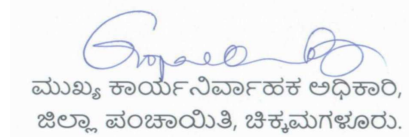 ಮುಖ್ಯ ಕಾರ್ಯನಿರ್ವಾಹಕ ಅಧಿಕಾರಿ,
ಜಿಲ್ಲಾ ಪಂಚಾಯಿತಿ, ಚಿಕ್ಕಮಗಳೂರು.